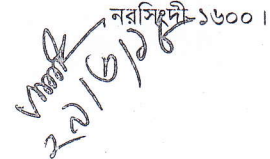 নরসিংদী-১৬০০।
২৯/৩/১৮